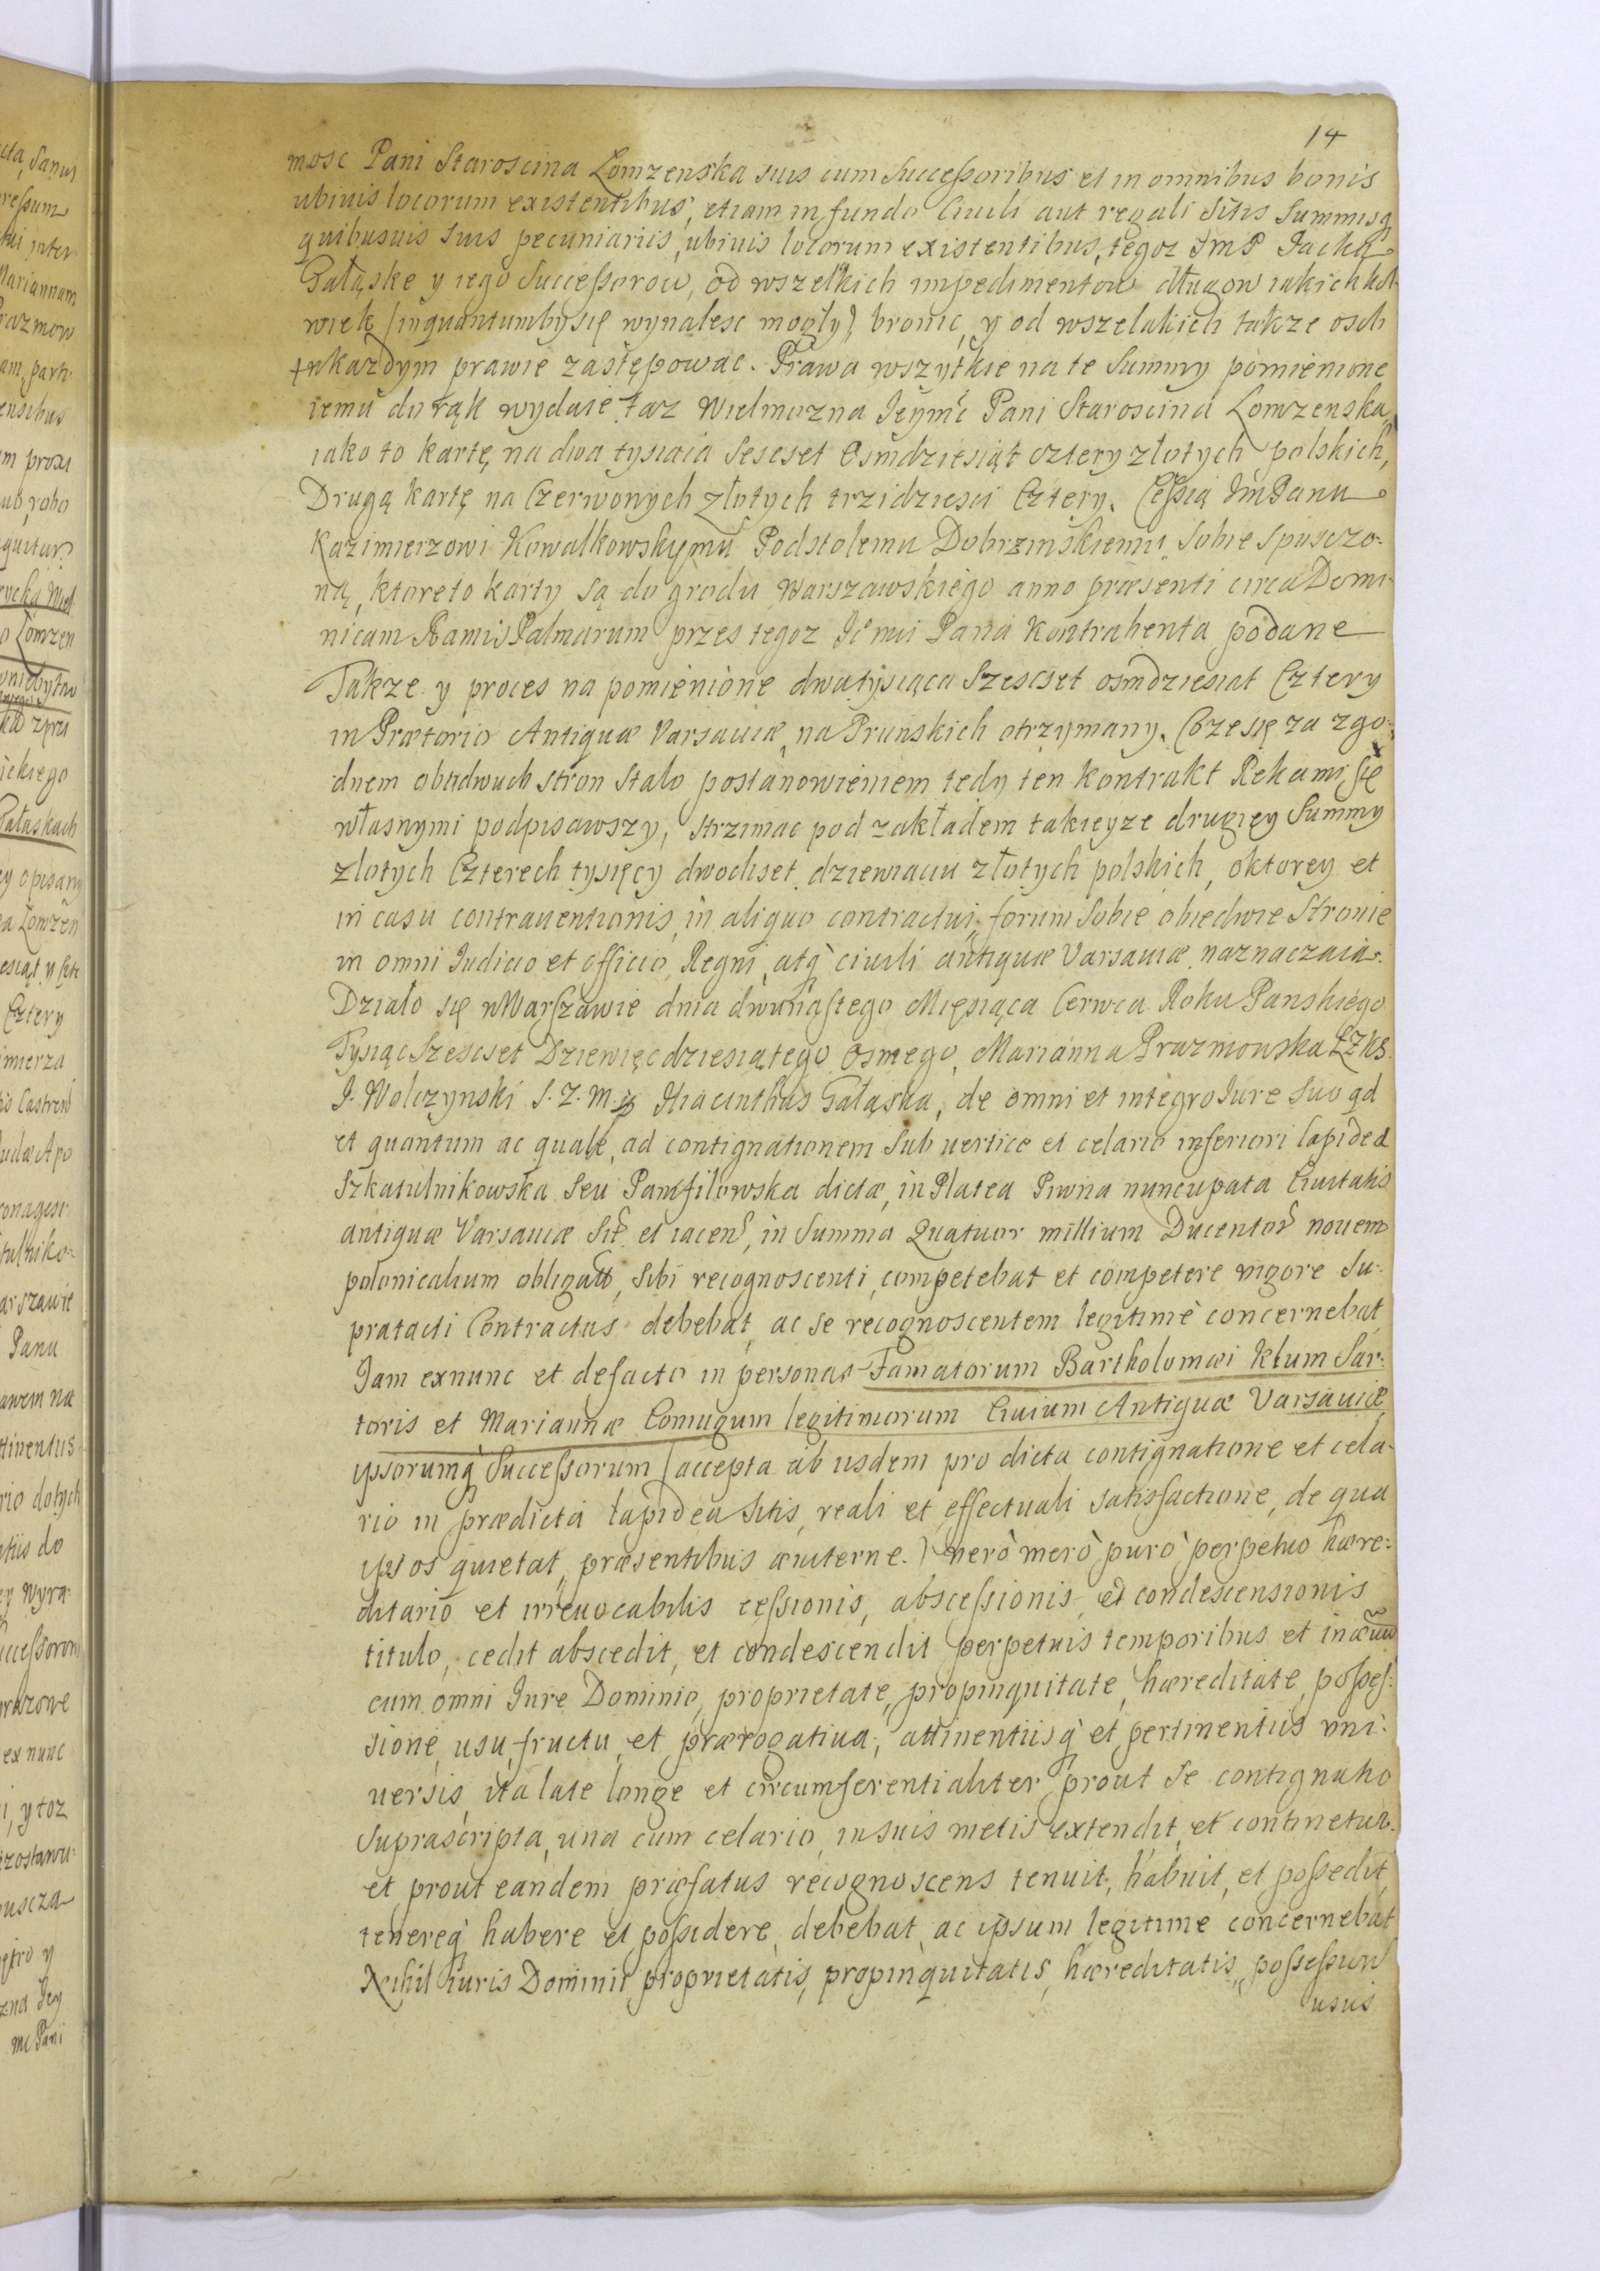 14
mosc Pani Staroscina Lomzenska suis cum Successoribus et in omnibus bonis
ubiuis locorum existentibus, etiam in fundo Ciuili aut regali Sitis Summisq
quibusuis suis pecuniariis, ubiuis locorum existentibus, tegoz JmP Jacka
Gałąske y iego Successorow, od wszelkich impedimentow długow iakichkol-
wiek (inquantumby się wynalesc mogły) bronic, y od wszelakich takze osob
wkazdym prawie zastępowac. Prawa wszytkie na te Summy pomienione
iemu do rąk wydaie taz Wielmozna Jeymc Pani Staroscina Lomzenska,
iako to kartę na dwa tysiaca Sescset Osmdziesiąt cztery złotych polskich,
Drugą kartę na Czerwonych złotych trzidziesci Cztery. Cessią JmPanu
Kazimierzowi Kowalkowskymu Podstolemu Dobrzinskiemu Sobie Spusczo-
ną, ktoreto karty są do grodu Warszawskiego anno præsenti circa Domi-
nicam Ramis Palmarum przes tegoz Jc mci Pana kontrahenta podane
Takze y proces na pomienione dwatysiąca Szescset osmdziesiat Cztery
in Prætorio Antiquæ Varsauiæ, na Prunskich otrzymany. Co ze się za zgo-
dnem obudwuch stron Stalo postanowieniem tedy ten kontrakt Rekami się
własnymi podpisawszy, strzimac pod zakładem takieyze drugiey Summy
zlotych Czterech tysięcy dwochset dziewiaciu złotych polskich, oktorey et
in casu contrauentionis, in aliquo contractui, forum Sobie obiedwie Stronie
in omni Judicio et officio, Regni, atq ciuili antiquæ Varsauiæ naznaczaia.
Działo się wWarszawie dnia dwunastego Miesiąca Cerwca Roku Panskiego
Tysiąc Szescset Dziewięcdziesiątego Osmego, Marianna Prazmowska LZKS.
J. Wolczynski S. Z. M. Hiacinthus Gałąska, de omni et integro Jure Suo qd
et quantum ac quale, ad contignationem Sub uertice et celario inferiori lapidea
Szkatulnikowska Seu Pamfilowska dictæ, in Platea Piwna nuncupata Ciuitatis
antiquæ Varsauiæ Sit et iacen, in Summa Quatuor millium Ducentor nouem
polonicalium obligatt, Sibi recognoscenti, competebat et competere uigore Su-
pratacti Contractus debebat, ac se recognoscentem legitimè concernebat
Jam exnunc et defacto in personas Famatorum Bartholomæi Klum Sar-
toris et Mariannæ Coniugum legitimorum Ciuium Antiquæ Varsauiæ
ipsorumq Successorum (accepta ab iisdem pro dicta contignatione et cela-
rio in prædicta lapidea Sitis, reali et effectuali satisfactione, de qua
ipsos quietat, præsentibus æuiterne.) uerò merò purò perpetuo hære-
ditario et irreuocabilis cessionis, abscessionis, et condescensionis
titulo, cedit abscedit, et condescendit perpetuis temporibus et in æuum
cum omni Jure Dominio, proprietate, propinquitate, hæreditate, posses-
sione, usu, fructu, et prærogatiua, attinentiisq et pertinentiis uni-
uersis, ita late longe et circumferentialiter, prout se contignatio
Suprascripta, una cum celario, in suis metis extendit, et continetur.
et prout eandem præfatus recognoscens tenuit, habuit, et possedit,
tenereq habere et possidere, debebat, ac ipsum legitime concernebat
Nihil iuris Dominii, proprietatis, propinquitatis, hæreditatis, possession
usus